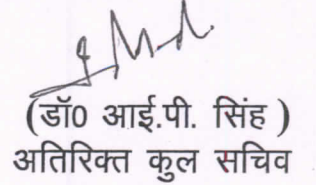 (डॉ0 आई.पी. सिंह )
अतिरिक्त कुल सचिव